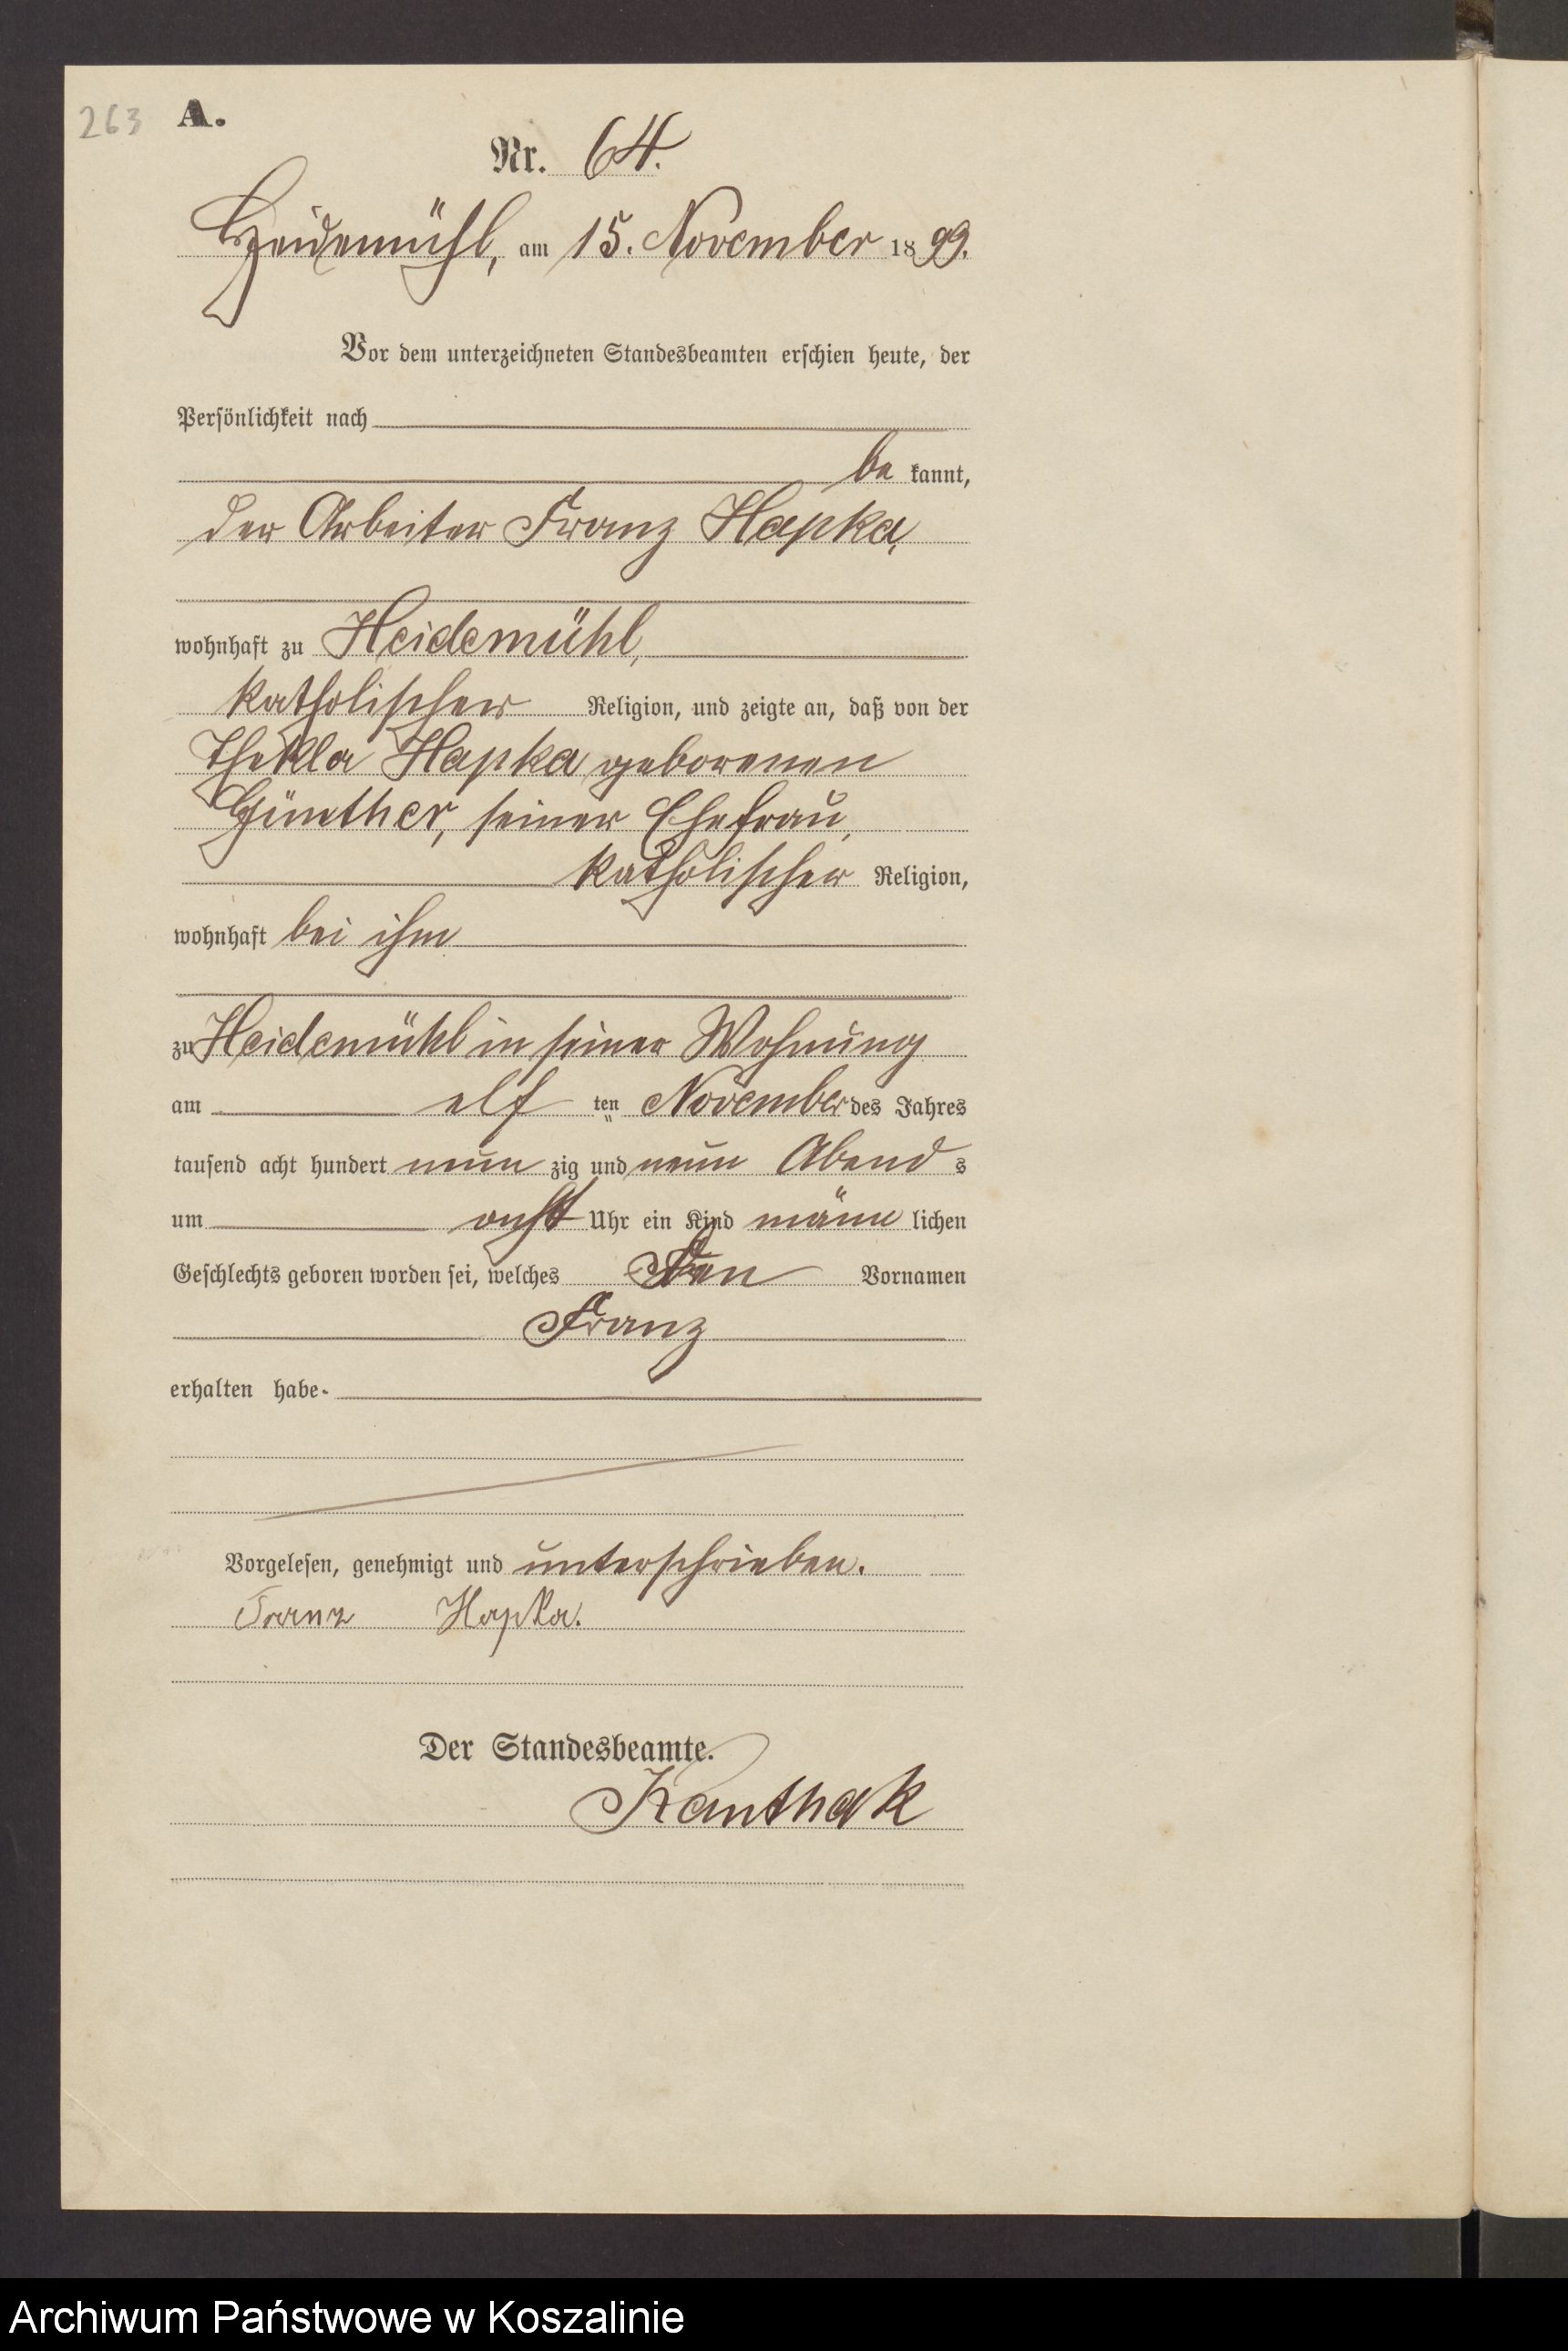 263 A.
Nr. 64.
Heidemühl, am 15. November 1899.
Vor dem unterzeichneten Standesbeamten erschien heute, der
Persönlichkeit nach
be kannt,
der Arbeiter Franz Hapka,
wohnhaft zu Heidemühl,
katholischer Religion, und zeigte an, daß von der
Thekla Hapka geborenen
Günther, seiner Ehefrau,
katholischer Religion,
wohnhaft bei ihm
zu Heidemühl in seiner Wohnung
am elf ten November des Jahres
tausend acht hundert neun zig und neun Abend s
um acht Uhr ein Kind männ lichen
Geschlechts geboren worden sei, welches den Vornamen
Franz
erhalten habe.
Vorgelesen, genehmigt und unterschrieben.
Franz Hapka.
Der Standesbeamte.
Kanthak
Archiwum Państwowe w Koszalinie